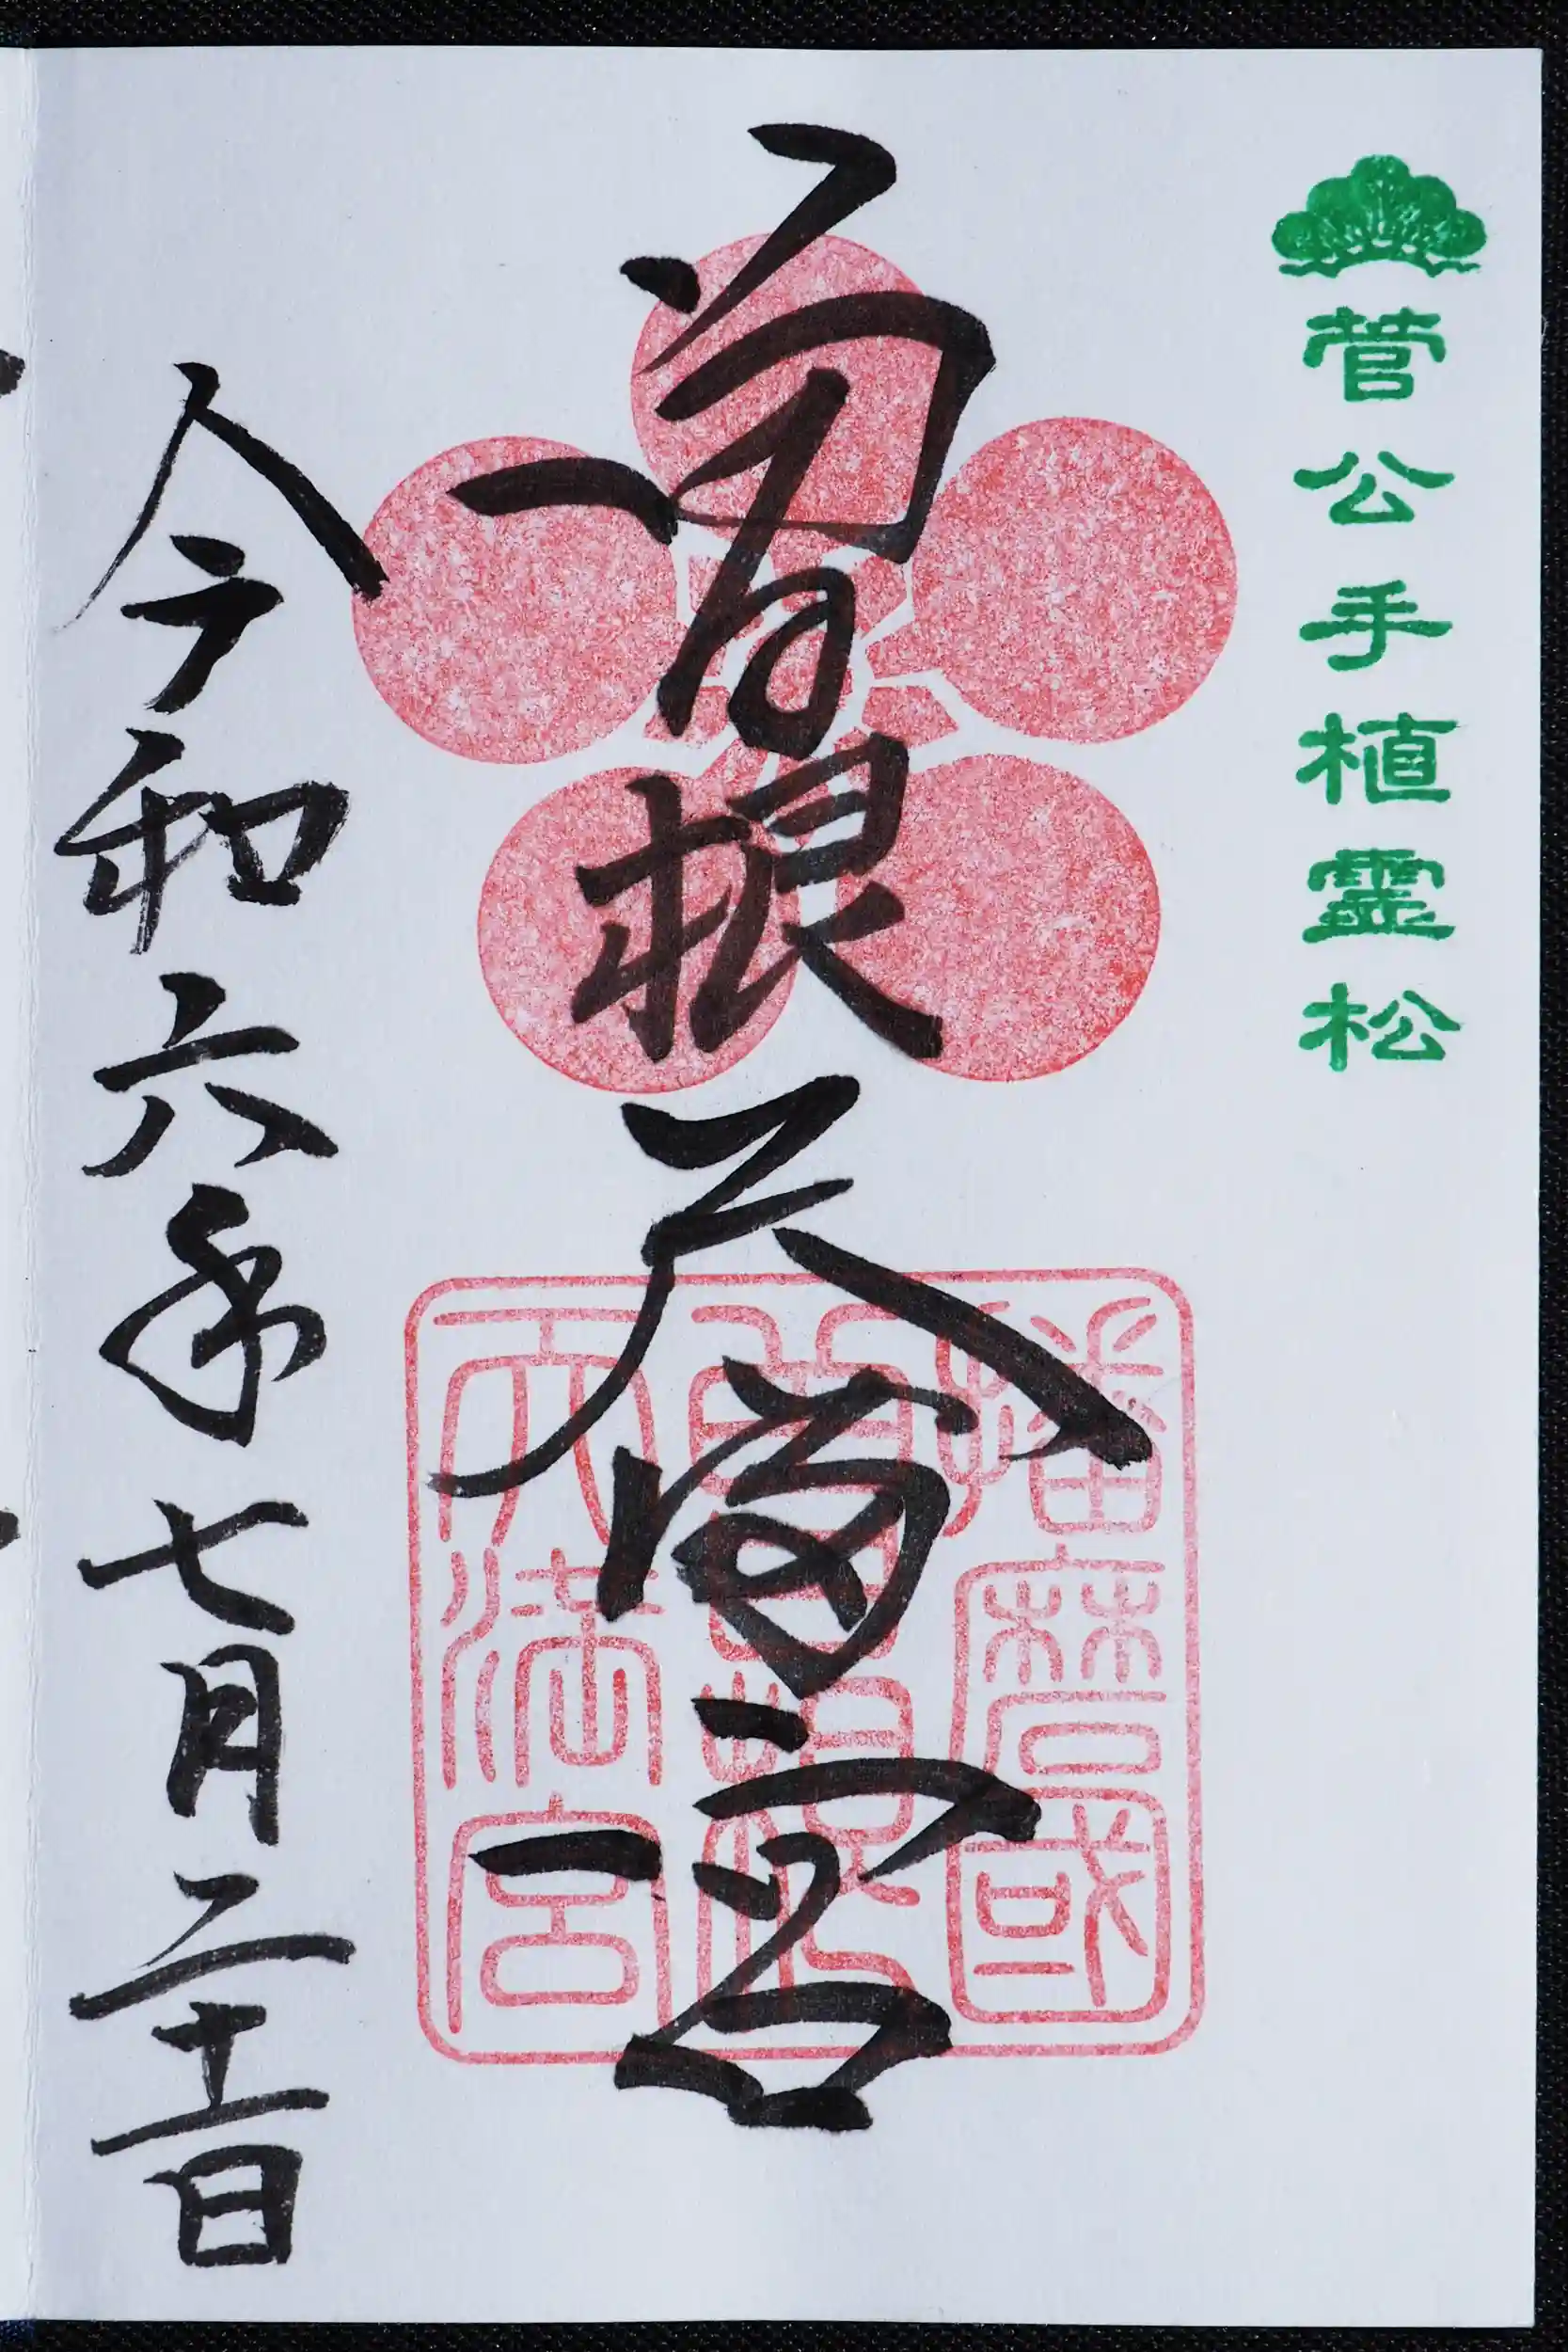 菅公手植霊松
曽根天満宮
播磨國
曽根
天満宮
令和六年七月二十一日